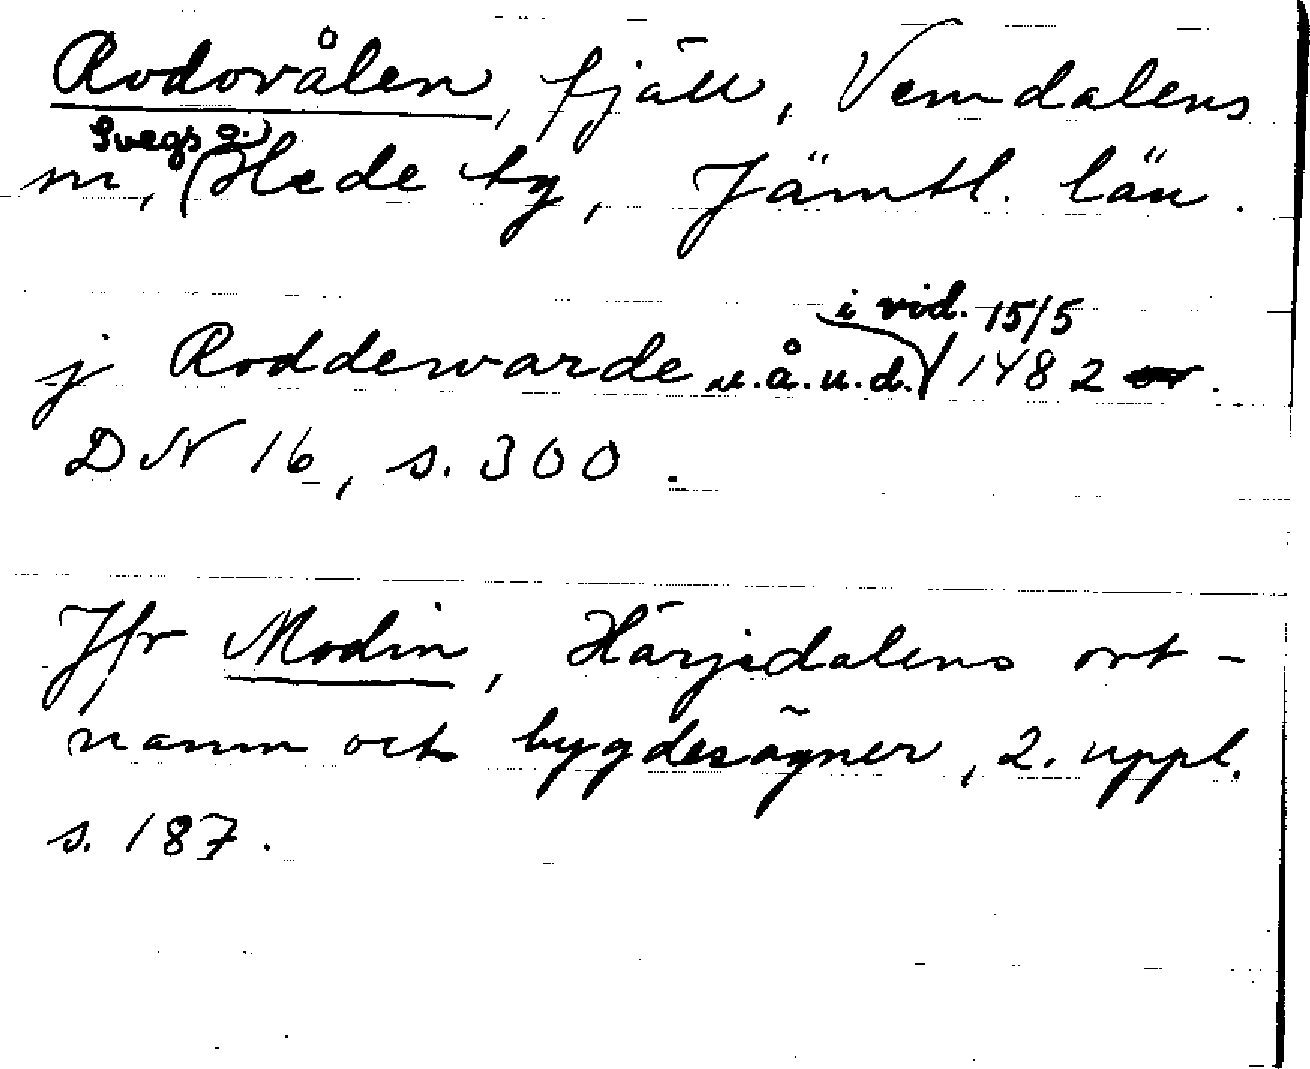 Rodovålen, fjäll, Vemdalens
sn, (Svegs o.) Hede tg, Jämtl. län.
j Roddewarde u.å.u.d. i vid. 15/5 1482.
DN 16, s. 300.
Jfr Modin, Härjedalens ort-
namn och bygdesägner, 2. uppl.
s. 187.